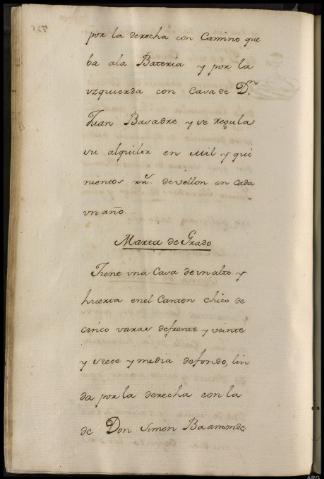 por la derecha con Camino que
ba ala Bateria y por la
yzquierda con Casa de Dn.
Juan Basadre y se regula
su alquiler en mil y qui
nientos rr.s de vellon en cada
un año.
Maria de Grado
Tiene una Casa de un alto y
huerta en el Canton chico de
cinco varas de frente y veinte
y siete y media de fondo, lin
da por la derecha con la
de Don Simon Baamonde